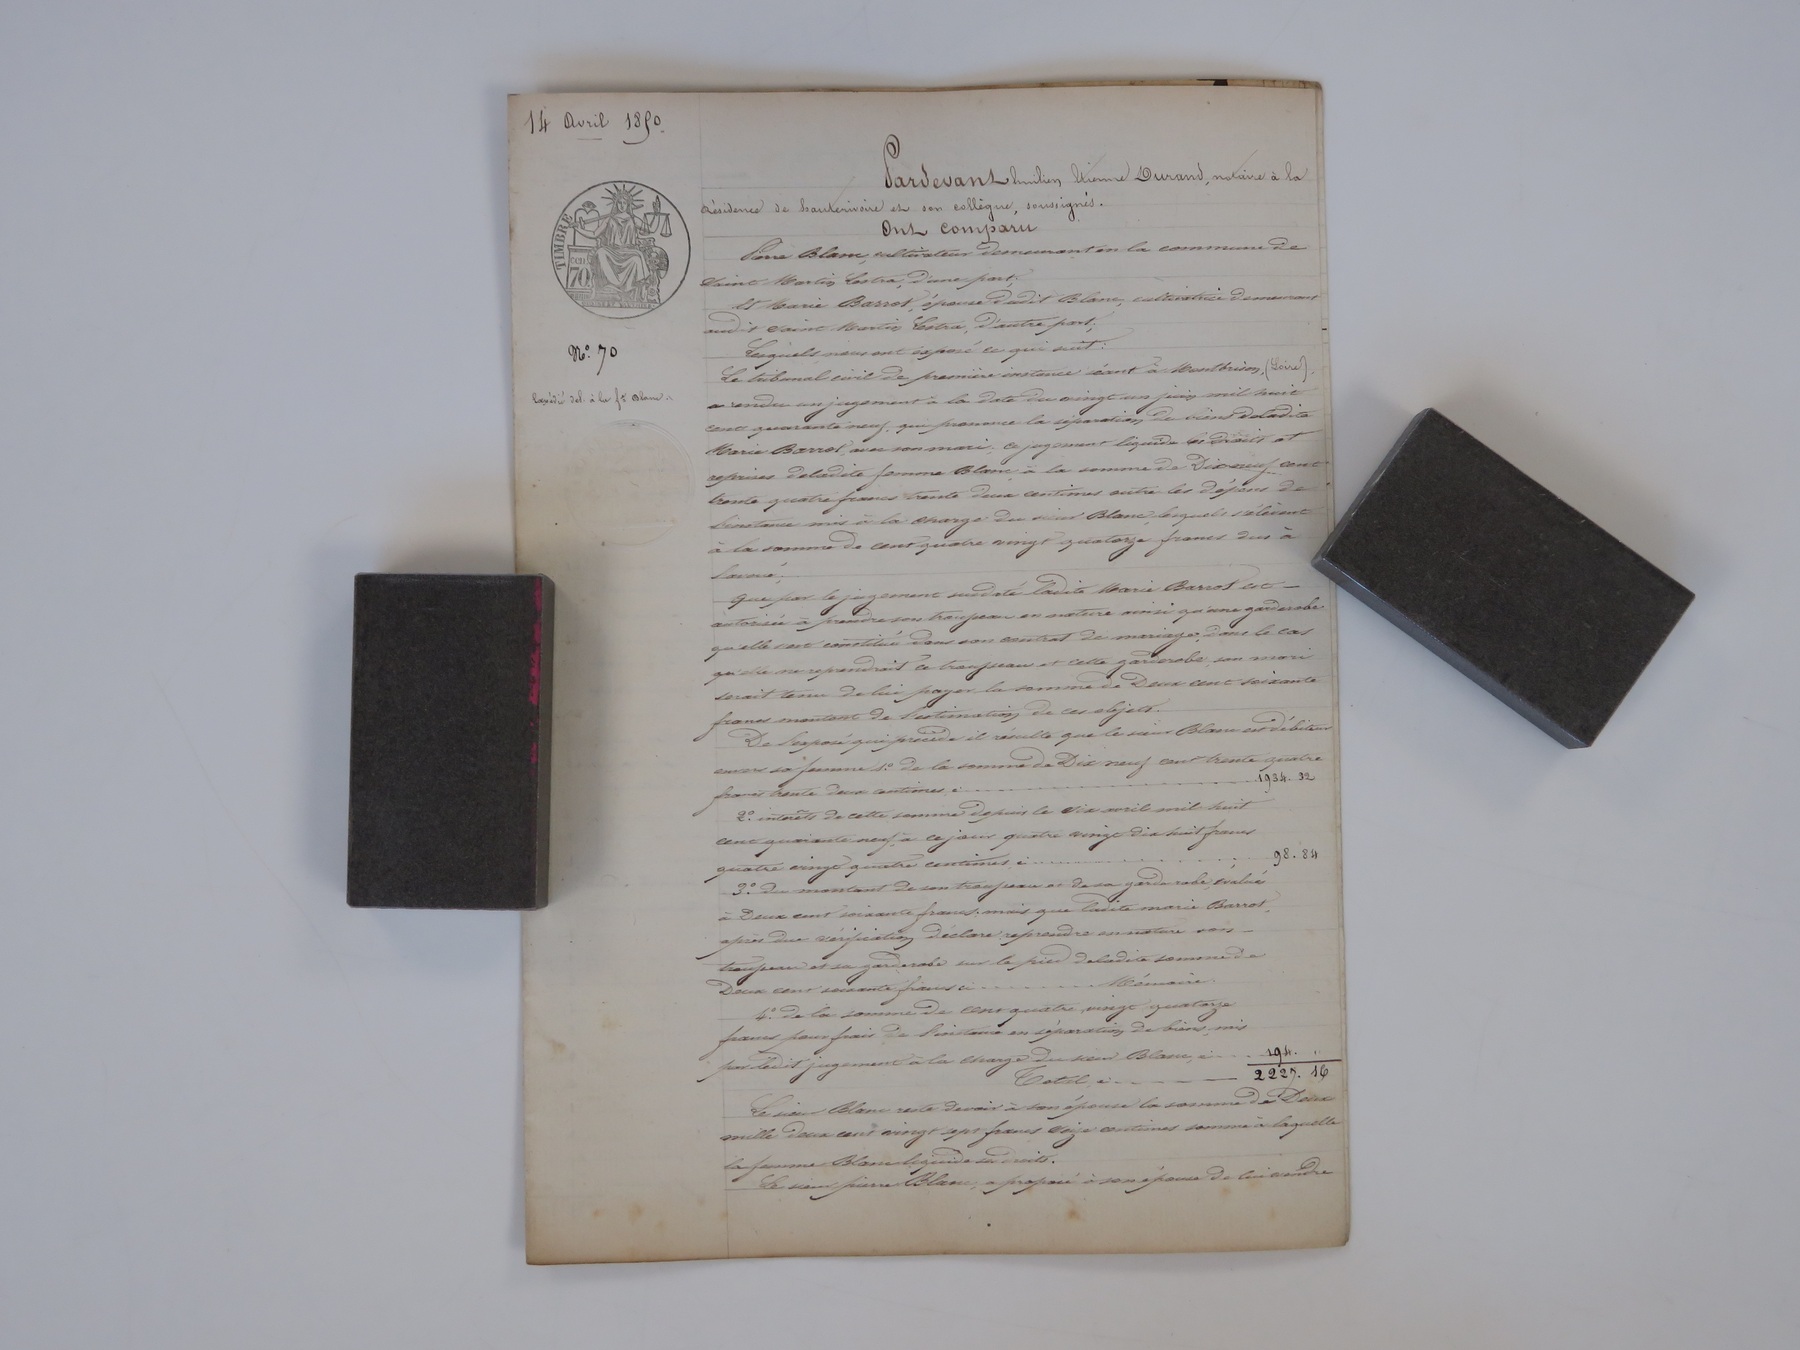 14 Avril 1850
Pardevant Etienne Durand, notaire à la
résidence de hauterivoire et son collègue, soussignés.
Ont comparu
TIMBRE
70
Pierre Blanc, cultivateur demeurant en la commune de
Saint Martin Lestra, d'une part;
Et Marie Barrot, épouse dudit Blanc, cultivatrice demeurant
audit Saint Martin Lestra, d'autre part;
N°. 70
Lesquels nous ont exposé ce qui suit:
Le tribunal civil de première instance séant à Montbrison, (Loire),
a rendu un jugement à la date du vingt un juin mil huit
cent quarante neuf, qui prononce la séparation de biens deladite
Marie Barrot, avec son mari; ce jugement liquide les droits et
reprises deladite femme Blanc à la somme de Dix neuf cent
trente quatre francs trente deux centimes outre les dépens de
l'instance mis à la charge du sieur Blanc, lesquels s'élèvent
à la somme de cent quatre vingt quatorze francs dus à
l'avoué;
Que par le jugement susdaté ladite Marie Barrot est —
autorisée à prendre son trousseau en nature ainsi qu'une garderobe
qu'elle s'est constitué dans son contrat de mariage, dans le cas
qu'elle ne reprendrait ce trousseau et cette garderobe, son mari
serait tenu de lui payer la somme de Deux cent soixante
francs montant de l'estimation de ces objets.
De l'exposé qui précède il résulte que le sieur Blanc est débiteur
envers sa femme 1° de la somme de Dix neuf cent trente quatre
francs trente deux centimes ci 1934. 32
2° intérêts de cette somme depuis le six avril mil huit
cent quarante neuf à ce jour quatre vingt dix huit francs
quatre vingt quatre centimes, ci 98. 84
3° du montant de son trousseau et de sa garderobe, évalué
à Deux cent soixante francs; mais que ladite marie Barrot,
après due vérification déclare reprendre en nature son —
trousseau et sa garderobe sur le pied deladite somme de
Deux cent soixante francs ci Mémoire
4° de la somme de cent quatre vingt quatorze
francs pour frais de l'instance en séparation de biens, mis
par ledit jugement à la charge du sieur Blanc, ci 194. "
Total, ci 2227. 16
Le sieur Blanc reste devoir à son épouse la somme de Deux
mille deux cent vingt sept francs seize centimes somme à laquelle
la femme Blanc liquide ses droits.
Le sieur pierre Blanc, a proposé à son épouse de lui vendre